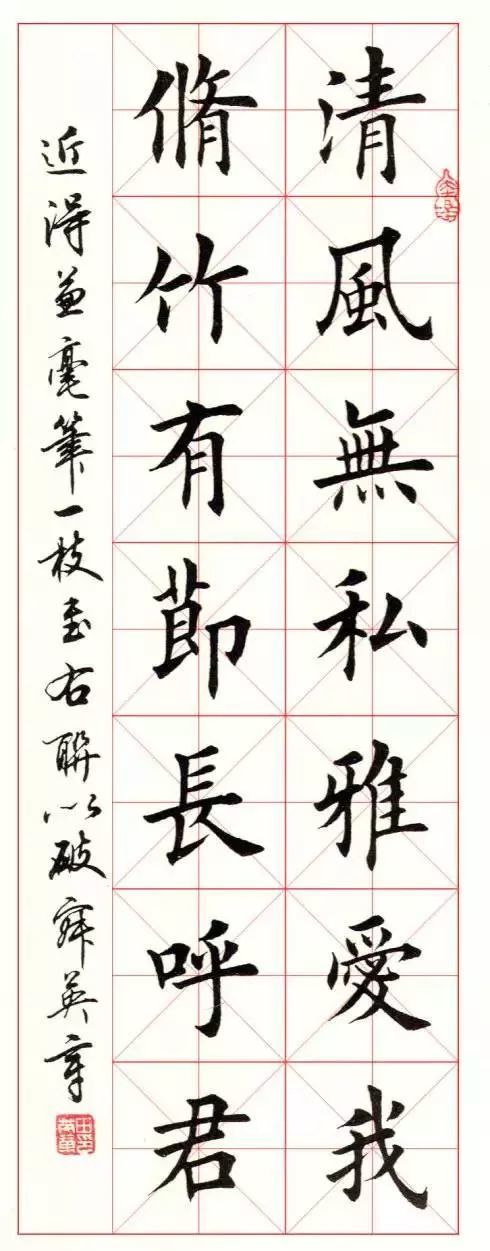 清風無私雅愛我
脩竹有莭長呼君
近得兼毫筆一枝書右聯以破寂英章
田印英章